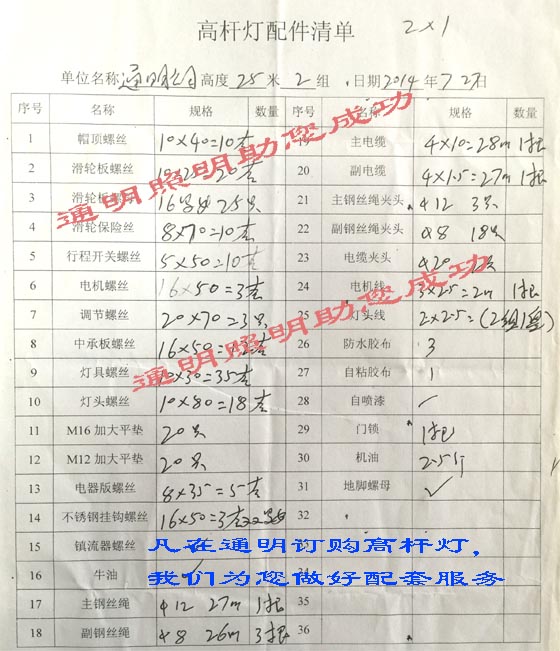 高杆灯配件清单 2×1
单位名称 通明 高度 25 米 2 组 日期 2014 年 7 27日
序号 名称 规格 数量 序号 名称 规格 数量
1 帽顶螺丝 10×40=10套 19 主电缆 4×10=28m 1根
2 滑轮板螺丝 20套 20 副电缆 4×1.5=27m 1根
3 滑轮 25只 21 主钢丝绳夹头 φ12 3只
4 滑轮保险丝 8×70=10套 22 副钢丝绳夹头 φ8 18只
5 行程开关螺丝 5×50=10套 23 电缆夹头 φ20
6 电机螺丝 16×50=3套 24 电机线 3×2.5=2m 1根
7 调节螺丝 20×70=3只 25 灯头线 2×2.5=(2组1盘)
8 中承板螺丝 16×50= 26 防水胶布 3
9 灯具螺丝 10×30=35套 27 自粘胶布 1
10 灯头螺丝 10×80=18套 28 自喷漆 ✓
11 M16加大平垫 20只 29 门锁 1把
12 M12加大平垫 20只 30 机油 2.5斤
13 电器版螺丝 8×35=5套 31 地脚螺母 ✓
14 不锈钢挂钩螺丝 16×50=3套 32
15 镇流器螺丝
16 牛油 ✓ 34
17 主钢丝绳 φ12 27m 1根 35
18 副钢丝绳 φ8 26m 3根 36
通明照明助您成功
通明照明助您成功
凡在通明订购高杆灯，
我们为您做好配套服务